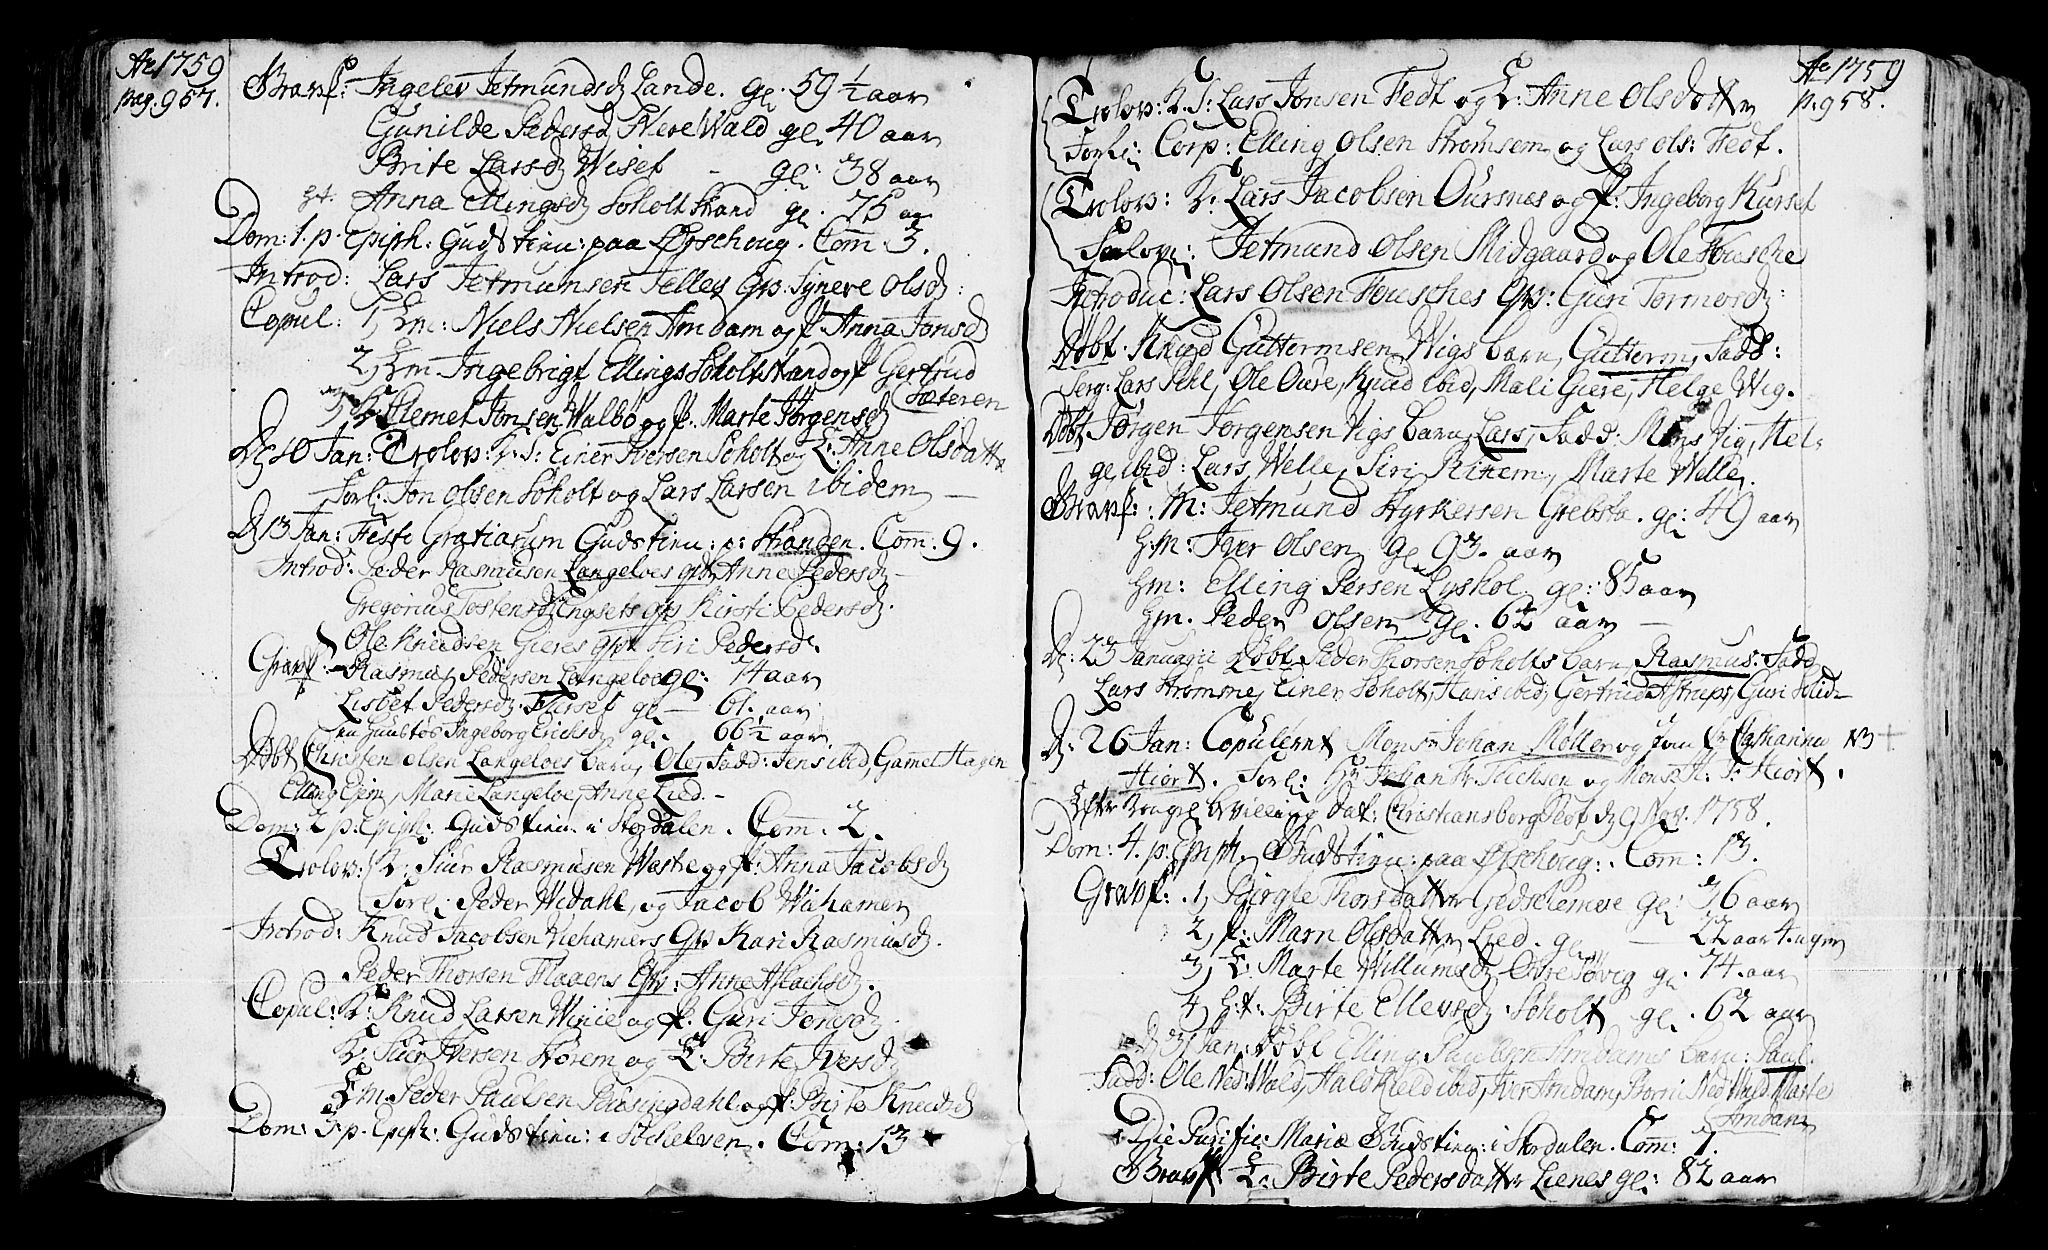 Ao 1759
pag. 957.
Gravf: Ingelev Jetmundsd Lande. gl. 59 1/2 aar
Gunilde Pedersd Nere Wald gl. 40 aar
Brite Larsd Wiset - gl: 38 aar
Anna Ellingsd Soholt strand gl. 75 aar
Dom: 1. p. Epiph: Gudstien: paa Ørschoug. Com. 3.
Introd: Lars Jetmunsen Felles Gv: Syneve Olsd:
Copul: 1, Em: Niels Nielsen Amdam og P. Anna Jonsd
2, Em Ingebrigt Ellings Soholtstrand og P Gertrud
Sæteren
3, K: Klemet Jonsen Walbø og P. Marte Jørgensd
D 10 Jan: Trolov: K. S: Einer Iversen Soholt og E: Anne Olsdatter
Forl: Jon Olsen Soholt og Lars Larsen ibidem
D 13 Jan: Festi Gratiarum Gudstien: p: Stranden. Com. 9.
Introd: Peder Rasmusen Langeloes gv Anne Pedersd
Gregorius Tostensen Engsets gv Kirsti Pedersd.
Ole Knudsen Gieres gv Siri Pedersd.
Gravf: Rasmus Pedersen Langeloe gl: 74 aar
Lisbet Pedersd. Furset gl - 61. aar
Ingeborg Erichsd gl. 66 1/2 aar
Døbt Christen Olsen Langeloes barn, Ole, Fadd: Jens ibid, Gamet Hagen
Elling Ejem, Marie Langeloe, Anne Lied. -
Dom: 2 p: Epiph: Gudstien i Stordalen. Com: 2.
Trolov: K: Siur Rasmusen Waste og P: Anna Jacobsd
Forl: Peder Widahl, og Jacob Wiehamer
Introd: Knud Jacobsen Viehamers Gv Kari Rasmusd.
Peder Thorsen Flaaens Gv: Anne Aslachsd.
Copul: K: Knud Larsen Winie og P. Guri Jonsd
K. Siur Iversen Storem og E. Birte Iversd
Em Peder Paulsen Røsingdahl og P: Birte Knudsd
Dom: 3. p. Epiph: Gudstien: i Søchelven. Com: 13
Ao 1759
p. 958.
Trolov: K. S: Lars Jonsen Fedt og E: Anne Olsdatter
Forl: Corp: Elling Olsen Strømsem og Lars Ols: Fedt.
Trolov: K: Lars Jacobsen Oursnes og P: Ingeborg Kurset
Forlov: Jetmund Olsen Midgaard og Ole
Introduc: Lars Olsen Gv: Guri Tormosd:
Døbt. Knud Guttormsen Wigs barn, Guttorm, Fadd:
Serg: Lars Sehl, Ole Oure, Knud ibid, Mali Giere, Helge Wig.
Døbt Jørgen Jørgensen Vigs barn, Lars, Fadd: Mons Vig, Hel-
ge ibid: Lars Welle, Siri Rinem, Marte Welle.
Gravf: M: Jetmund Styrkersen Grebsta. gl: 49 aar
Hm: Iver Olsen gl 93. aar
Hm: Elling Persen Lyshol gl: 85 aar
Hm. Peder Olsen gl. 62 aar -
D: 23 Januarii Døbt Peder Thorsen Soholts barn, Rasmus: Fadd
Lars Strømme, Einer Soholt, Hans ibid, Gertrud Astrups, Guri ibid -
D: 26 Jan: Copulernt Monsr Johan Møller og Catharina NB +
Hiort. Forl: Hr Johan Fr Tuchsen og Mons H: F: Hiort.
Efter Kongel bevilling dat: Christiansborg Slot d 9 Nov. 1758.
Dom: 4. p. Epiph. Gudstien: paa Ørschoug: Com: 13.
Gravf: 1, Birgte Thorsdatter gl: 36 aar
2, P: Marn Olsdatter Lied. gl - 22 aar 4. uger
3, E: Marte Willumsd Øvre Søvig gl. 74. aar
4, Birte Ellevsd Soholt gl. 62 aar
D 31 Jan: Døbt Elling Paulsen Amdams barn: Paul.
Fadd: Ole Ned: Wald, Halskield ibid, Iver Amdam, Ned Wald, Marte
Amdam
Die Purific: Mariæ Gudstien: i Stordalen. Com: 7.
Gravf E: Birte Pedersdatter Lienes gl: 82 aar